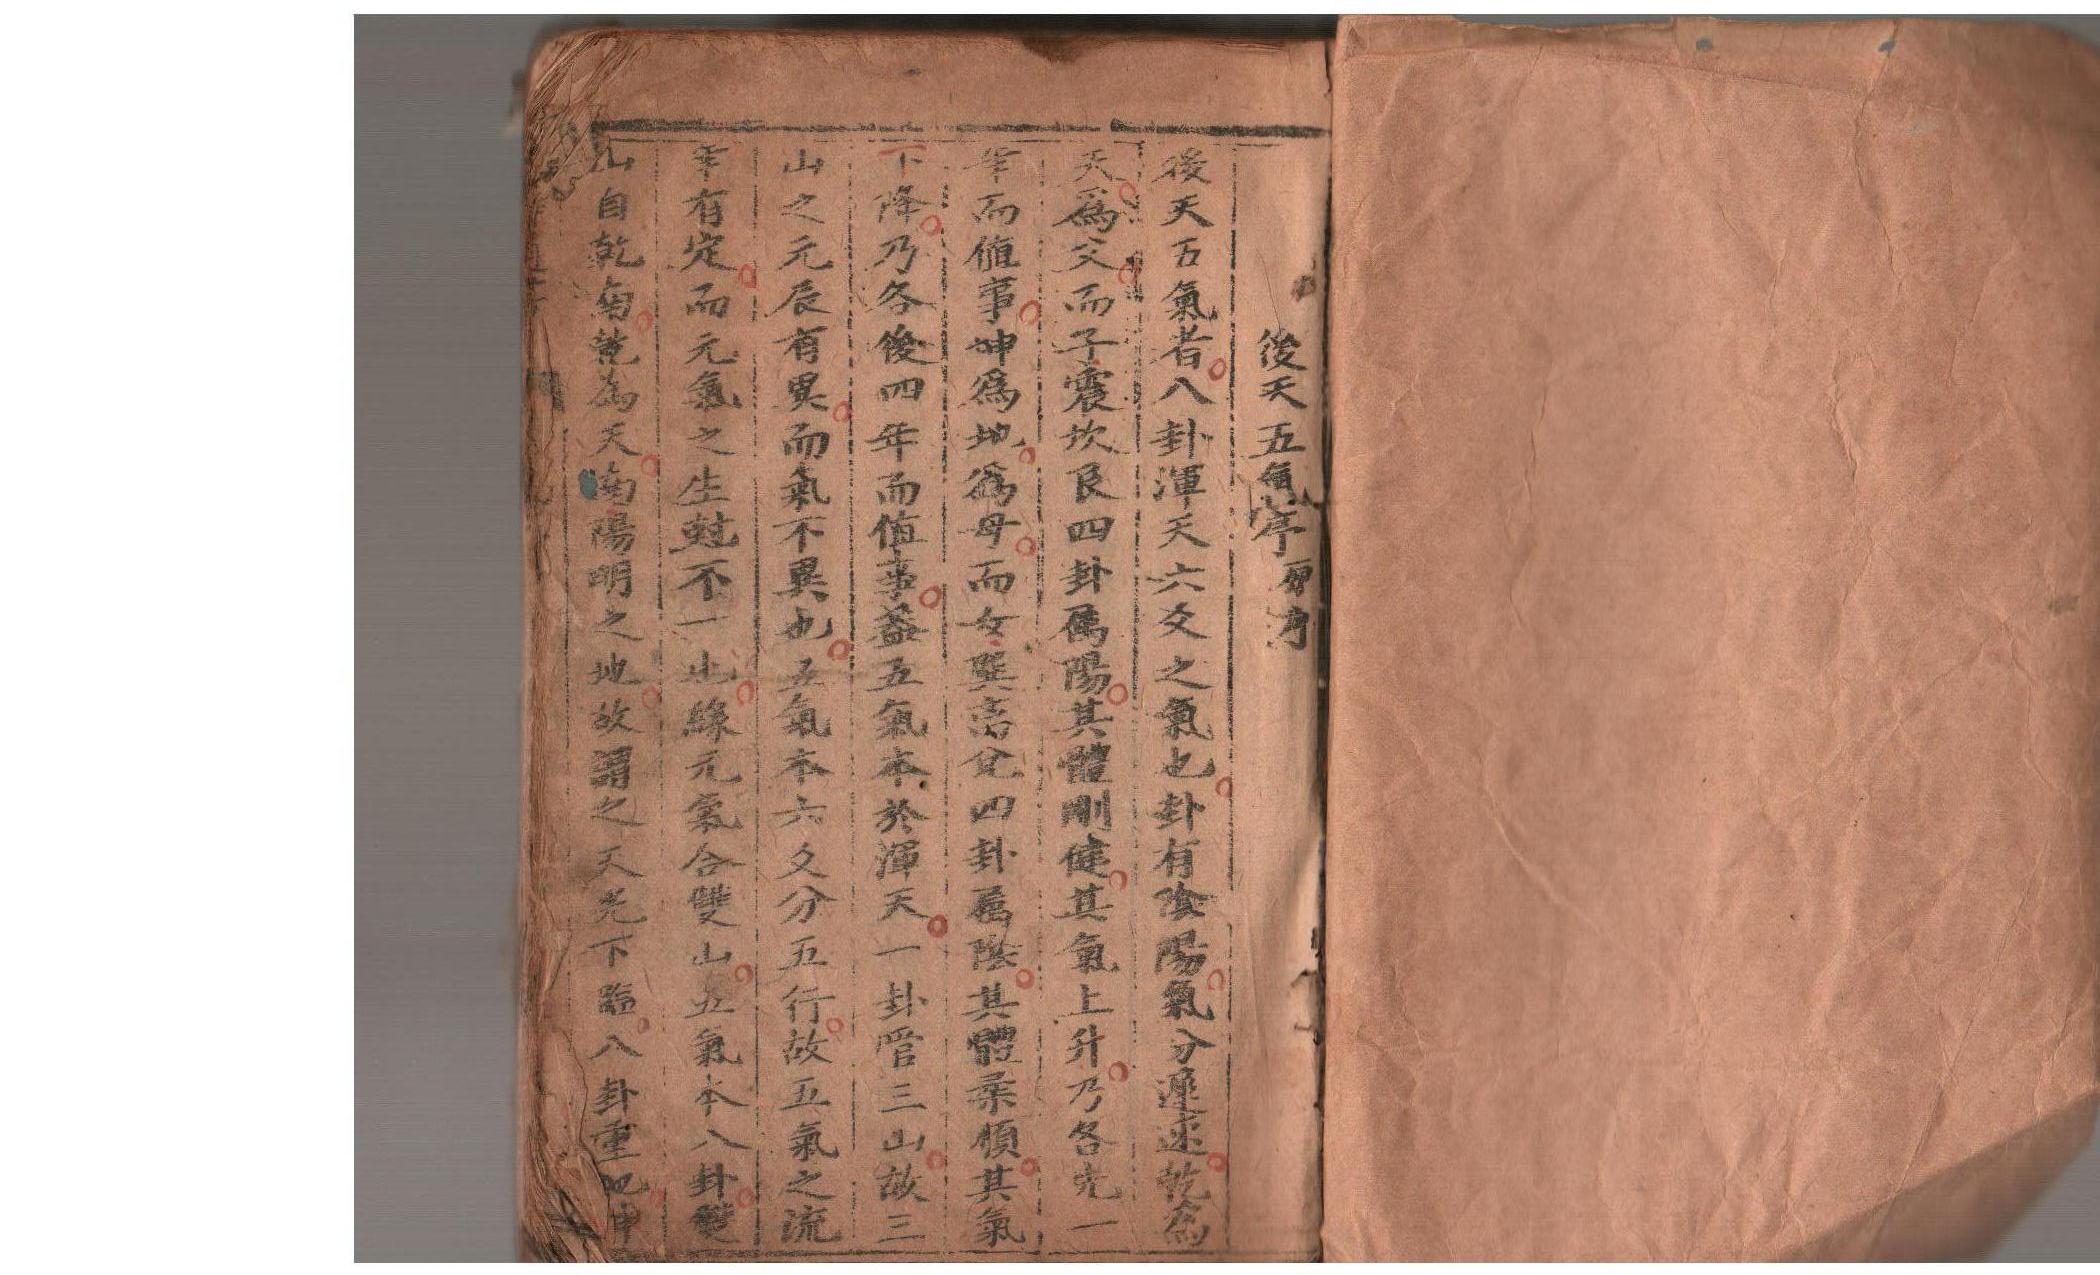 後天五氣亭原序
後天五氣者八卦渾天六爻之氣也卦有陰陽氣分遲速乾為
天為父而子震坎艮四卦屬陽其體剛健其氣上升乃各先一
年而值事坤為地為母而女巽离兌四卦屬陰其體柔順其氣
下降乃各後四年而值事蓋五氣本於渾天一卦管三山故三
山之元辰有異而氣不異也五氣本六爻分五行故五氣之流
年有定而元氣之生尅不一也緣元氣合雙山五氣本八卦雙
山自乾為天陽明之地故謂之天光下臨八卦重地坤